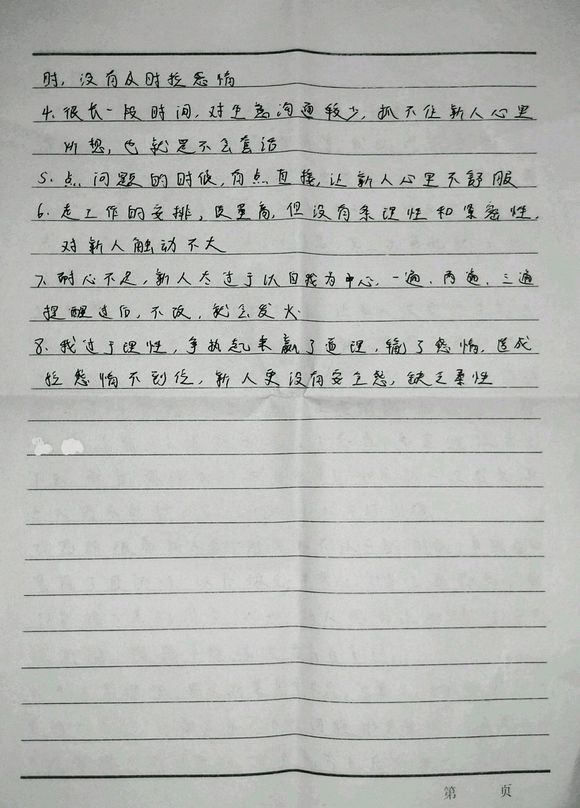 时，没有及时拉感情
4. 很长一段时间，对生意沟通较少，抓不住新人心里
所想，也就是不会套话
5. 点问题的时候，有点直接，让新人心里不舒服
6. 走工作的安排，质量高，但没有条理性和紧密性，
对新人触动不大
7. 耐心不足，新人太过于以自我为中心，一遍、两遍、三遍
提醒过后，不改，就会发火
8. 我过于理性，争执起来赢了道理，输了感情，造成
拉感情不到位，新人更没有安全感，缺乏柔性
第 页